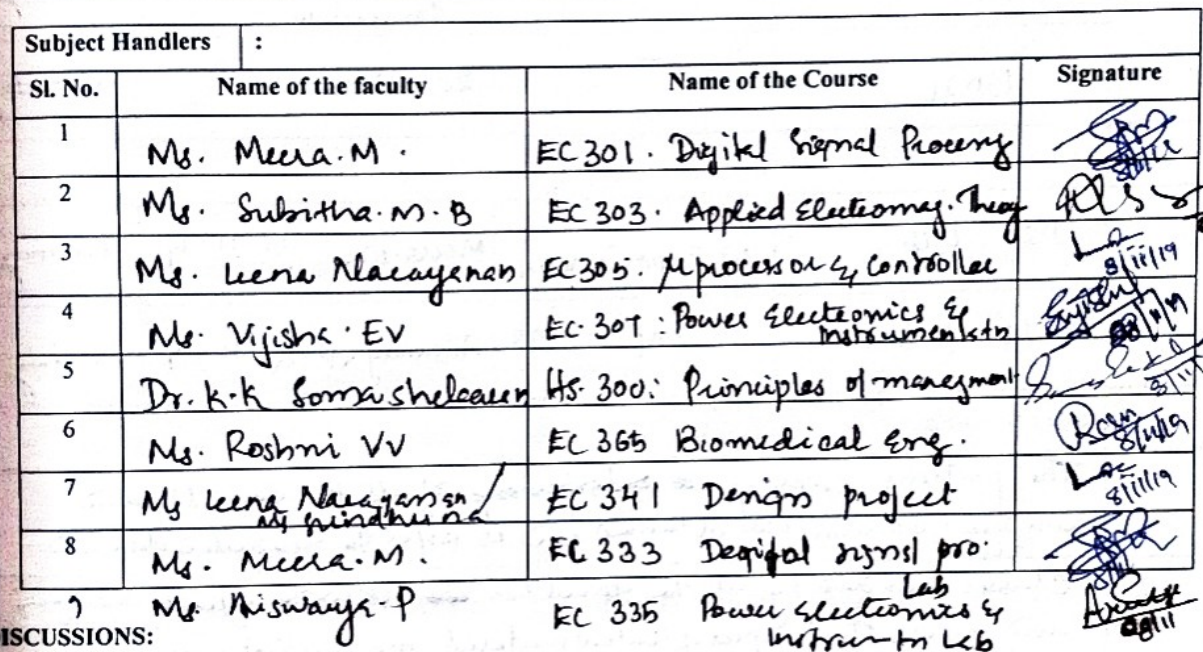 Subject Handlers :
Sl. No. Name of the faculty Name of the Course Signature
1 Ms. Meera. M. EC 301. Digital Signal Processg
2 Ms. Subitha. M. B EC 303. Applied Electromag. Theoy
3 Ms. Leena Narayanan EC 305. μprocessor & Controller 8/11/19
4 Ms. Vijisha EV EC 307: Power Electronics &
Instrumentatn
5 Dr. K.K Somashekaren HS. 300: Principles of manegment
6 Ms. Roshni VV EC 365 Biomedical Eng. 8/11/19
7 Ms Leena Narayanan / EC 341 Design project 8/11/19
Ms
8 Ms. Meera. M. EC 333 Degital signal pro.
Lab
Ms. Aiswarya. P EC 335 Power Electronics & 08/11
Lab
ISCUSSIONS: